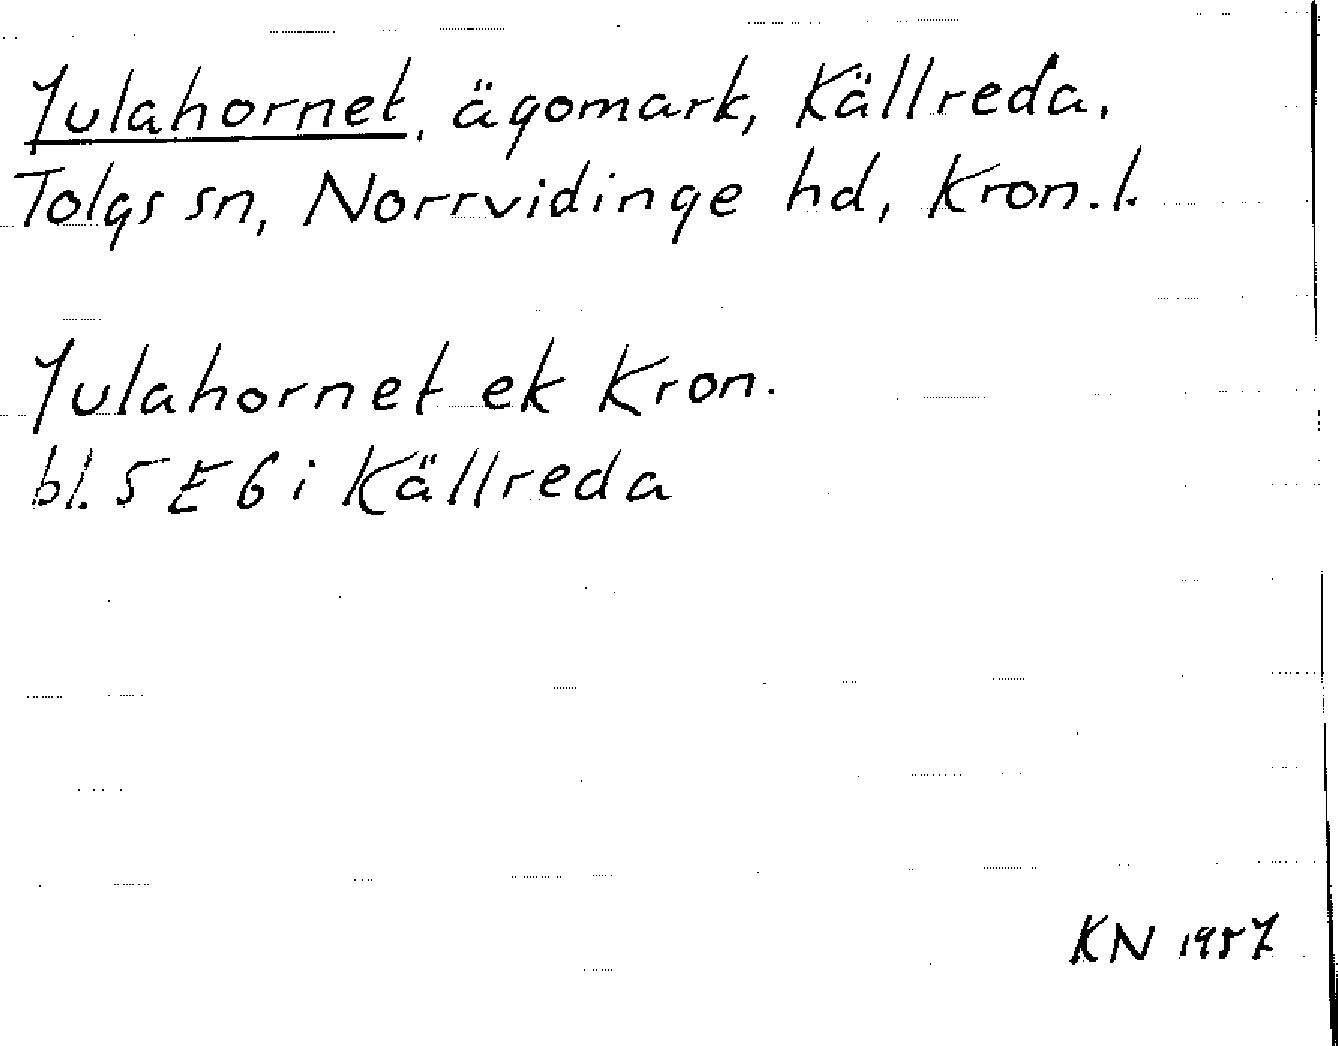 Julahornet, ägomark, Källreda.
Tolgs sn, Norrvidinge hd, Kron. l.
Julahornet ek Kron.
bl. 5 E 6 i Källreda
KN 1957